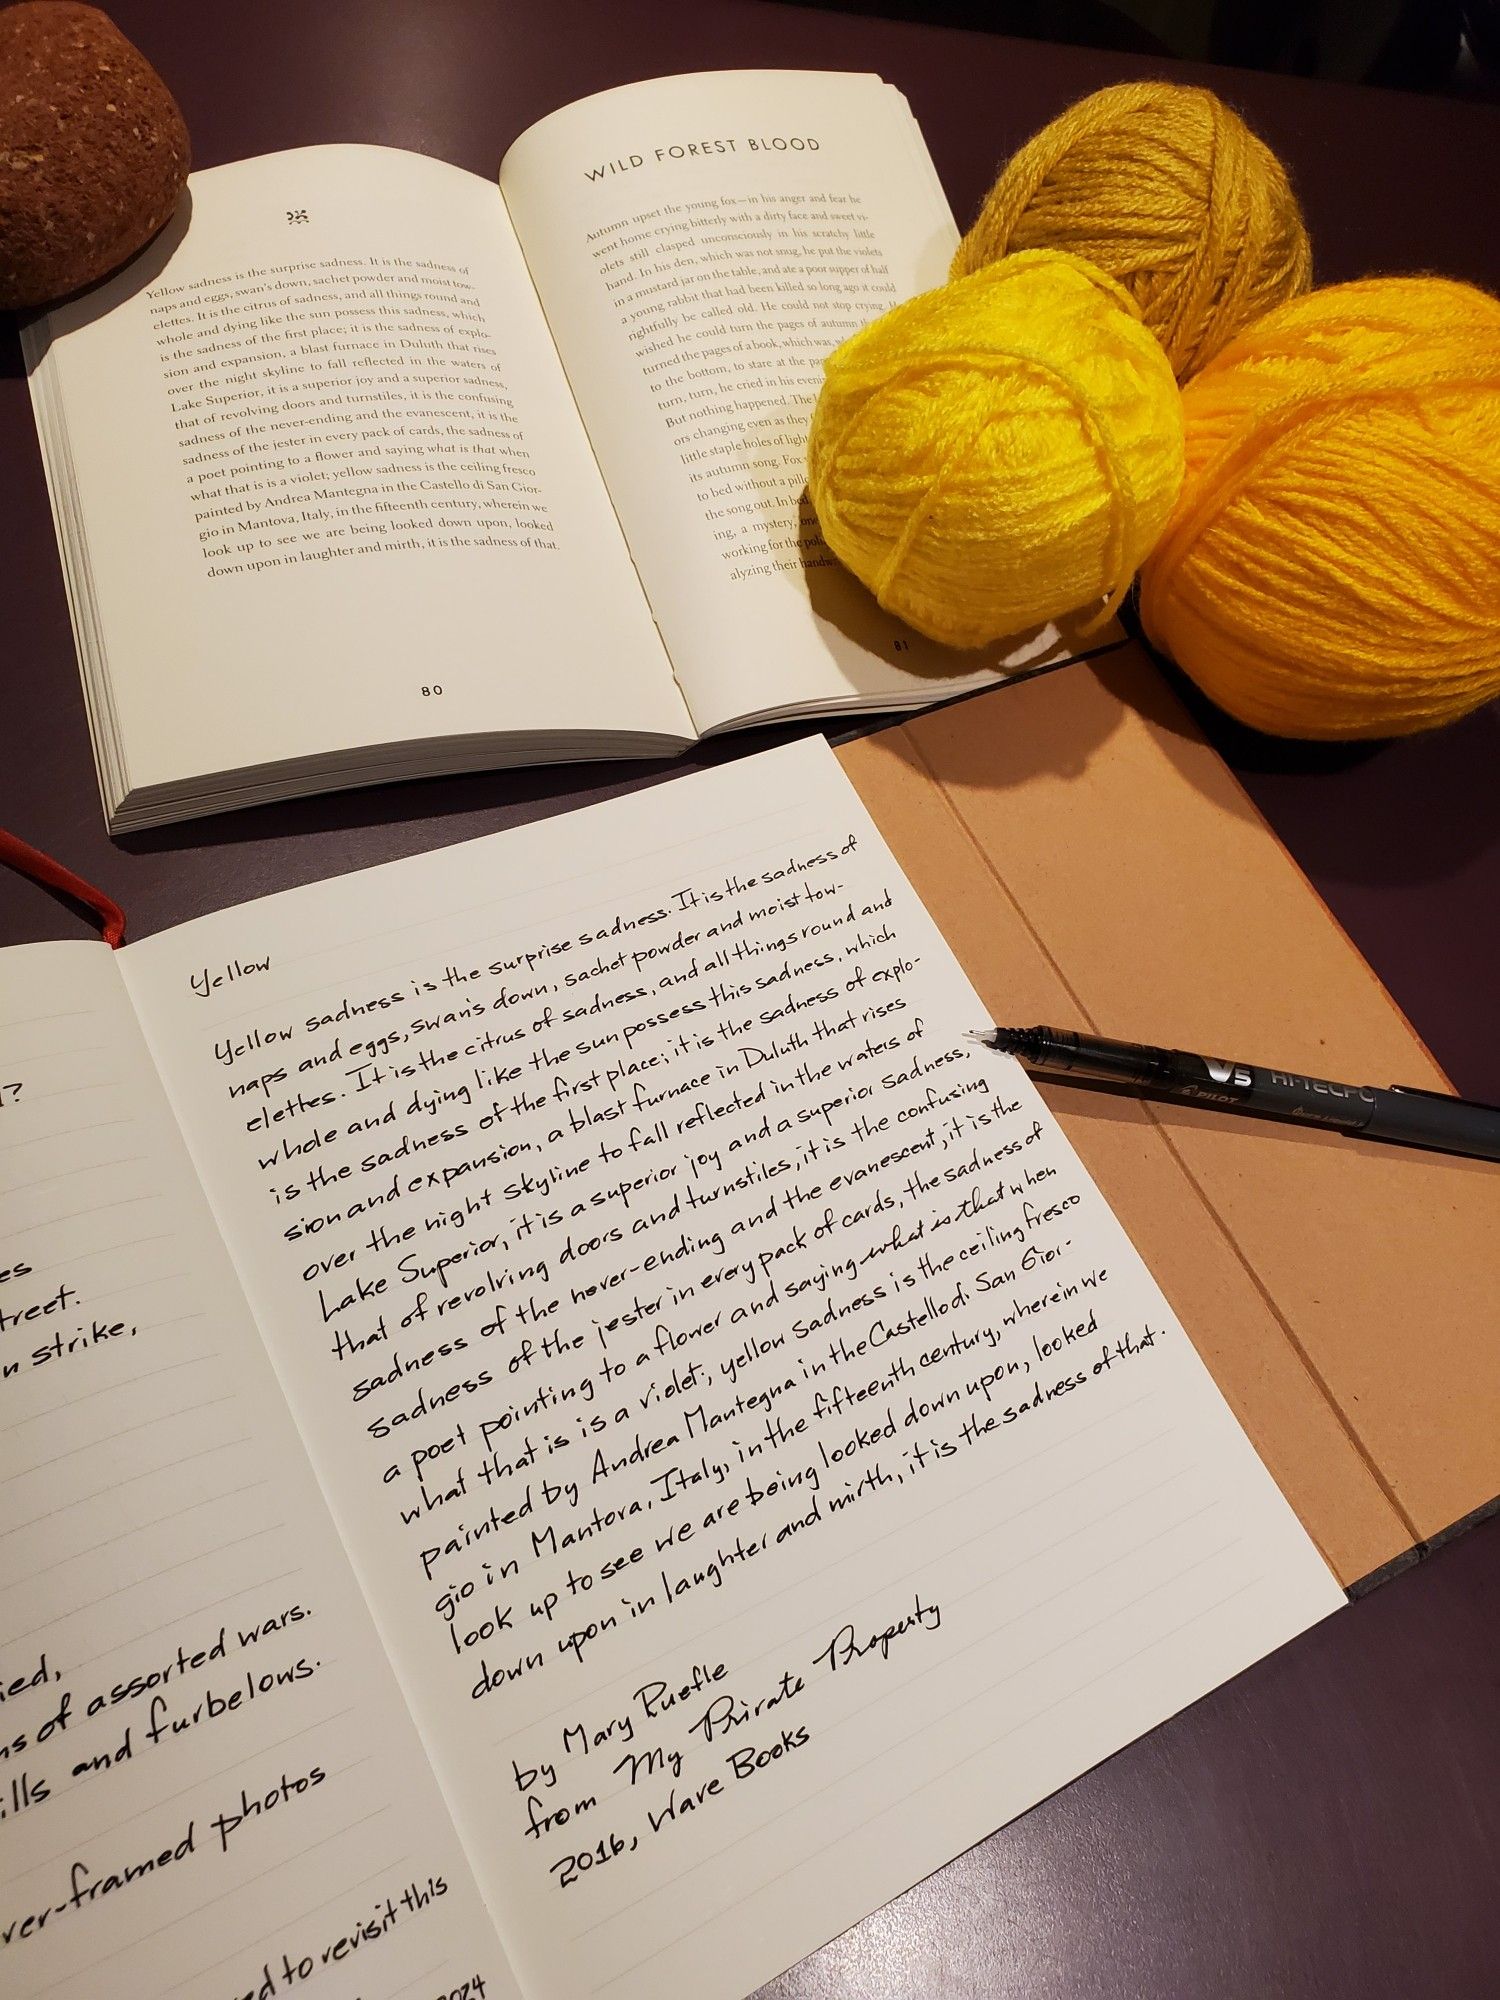 Yellow sadness is the surprise sadness. It is the sadness of
naps and eggs, swan's down, sachet powder and moist tow-
elettes. It is the citrus of sadness, and all things round and
whole and dying like the sun possess this sadness, which
is the sadness of the first place; it is the sadness of explo-
sion and expansion, a blast furnace in Duluth that rises
over the night skyline to fall reflected in the waters of
Lake Superior, it is a superior joy and a superior sadness,
that of revolving doors and turnstiles, it is the confusing
sadness of the never-ending and the evanescent, it is the
sadness of the jester in every pack of cards, the sadness of
a poet pointing to a flower and saying what is that when
what that is is a violet; yellow sadness is the ceiling fresco
painted by Andrea Mantegna in the Castello di San Gior-
gio in Mantova, Italy, in the fifteenth century, wherein we
look up to see we are being looked down upon, looked
down upon in laughter and mirth, it is the sadness of that.
80
WILD FOREST BLOOD
Autumn upset the young fox—in his anger and fear he
went home crying bitterly with a dirty face and sweet vi-
olets still clasped unconsciously in his scratchy little
hand. In his den, which was not snug, he put the violets
in a mustard jar on the table, and ate a poor supper of half
a young rabbit that had been killed so long ago it could
rightfully be called old. He could not stop crying. H
wished he could turn the pages of autumn
turned the pages of a book, which was,
to the bottom, to stare at the
turn, turn, he cried in his
But nothing happened. The
ors changing even as they
little staple holes of light
its autumn song. Fox
to bed without a
the song out. In bed,
ing, a mystery,
working for the
alyzing their
81
?
es
treet.
n strike,
ied,
ns of assorted wars.
ills and furbelows.
ver-framed photos
ed to revisit this
2024
Yellow
Yellow sadness is the surprise sadness. It is the sadness of
naps and eggs, swan's down, sachet powder and moist tow-
elettes. It is the citrus of sadness, and all things round and
whole and dying like the sun possess this sadness, which
is the sadness of the first place; it is the sadness of explo-
sion and expansion, a blast furnace in Duluth that rises
over the night skyline to fall reflected in the waters of
Lake Superior, it is a superior joy and a superior sadness,
that of revolving doors and turnstiles, it is the confusing
sadness of the never-ending and the evanescent, it is the
sadness of the jester in every pack of cards, the sadness of
a poet pointing to a flower and saying what is that when
what that is is a violet; yellow sadness is the ceiling fresco
painted by Andrea Mantegna in the Castello di San Gior-
gio in Mantova, Italy, in the fifteenth century, wherein we
look up to see we are being looked down upon, looked
down upon in laughter and mirth, it is the sadness of that.
by Mary Ruefle
from My Private Property
2016, Wave Books
V5 HI-TECPO
PILOT